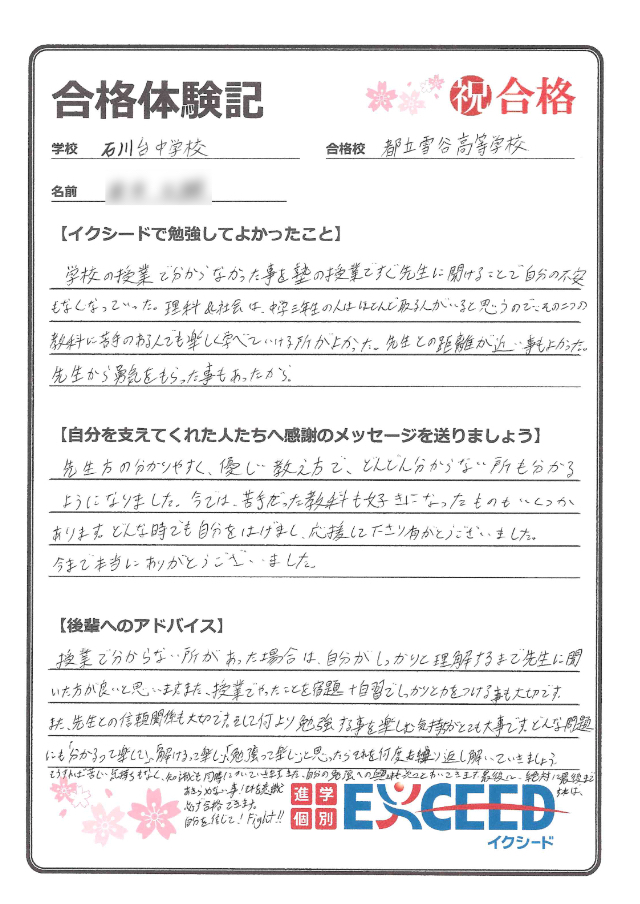 合格体験記
祝 合格
学校 石川台中学校
合格校 都立雪谷高等学校
名前
【イクシードで勉強してよかったこと】
学校の授業で分からなかった事を塾の授業ですぐ先生に聞けることで自分の不安
もなくなっていった。理科&社会は、中学三年生の人はほとんど取る人がいると思うので、その二つの
教科に苦手のある人でも楽しく学べていける所がよかった。先生との距離が近い事もよかった。
先生から勇気をもらった事もあったから。
【自分を支えてくれた人たちへ感謝のメッセージを送りましょう】
先生方の分かりやすく、優しい教え方で、どんどん分からない所も分かる
ようになりました。今では、苦手だった教科も好きになったものもいくつか
あります。どんな時でも自分をはげまし、応援して下さり有がとうございました。
今まで本当にありがとうございました。
【後輩へのアドバイス】
授業で分からない所があった場合は、自分がしっかりと理解するまで先生に聞
いた方が良いと思います。また、授業でやったことを宿題+自習でしっかりと力をつける事も大切です。
また、先生との信頼関係も大切です。そして何より勉強する事を楽しむ気持ちがとても大事です。どんな問題
にも「分かるって楽しい」「解けるって楽しい」「勉強って楽しい」と思ったらそれを何度も繰り返し解いていきましょう
そうすれば苦しい気持ちもなく、知識も同時についていきます。また、自分の勉強への 最後に、絶対に最後まで
あきらめない事!
必ず合格できます。
自分を信じて! Fight!!
進学
個別
EXCEED
イクシード